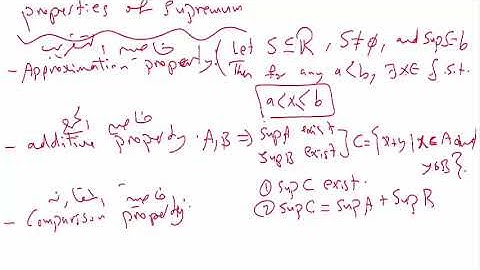 properties of Supremum
خاصية التقريب
- Approximation property (Let S ⊆ ℝ, S ≠ ∅, and Sup S = b
Then for any a < b, ∃ x ∈ S s.t.
a < x ≤ b
خاصية الجمع
- additive property. A, B ⇒ Sup A exist
Sup B exist] C = {x+y | x ∈ A and
y ∈ B}.
① Sup C exist.
② Sup C = Sup A + Sup B
خاصية المقارنة
- Comparison property.